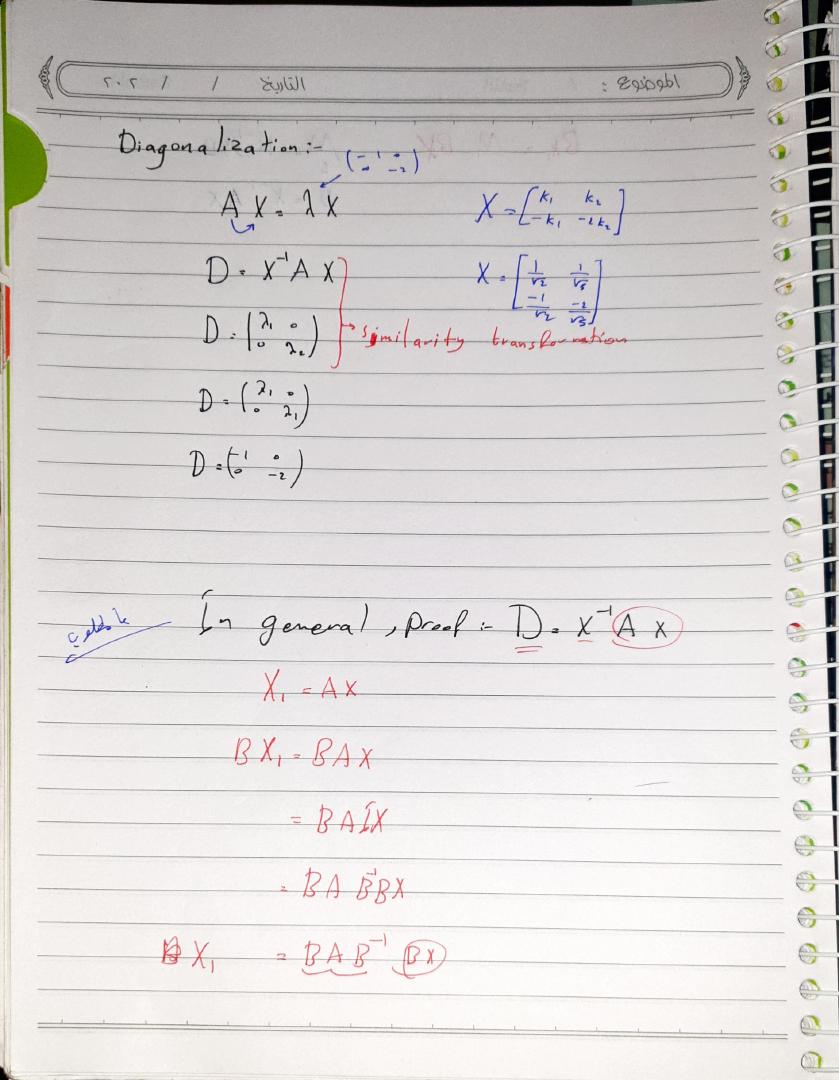 الموضوع : التاريخ / / ٢٠٢
Diagonalization :-
(-1 0
0 -2)
A X = λ X
X = [k₁ k₂
-k₁ -2k₂]
D = X⁻¹ A X
X = [1/√2 1/√5
-1/√2 -2/√5]
D = (λ₁ 0
0 λ₂)
similarity transformation
D = (λ₁ 0
0 λ₁)
D = (-1 0
0 -2)
In general , Proof :- D = X⁻¹ A X
X₁ = AX
BX₁ = BAX
= BAIX
= BA B⁻¹BX
B X₁ = BAB⁻¹ BX